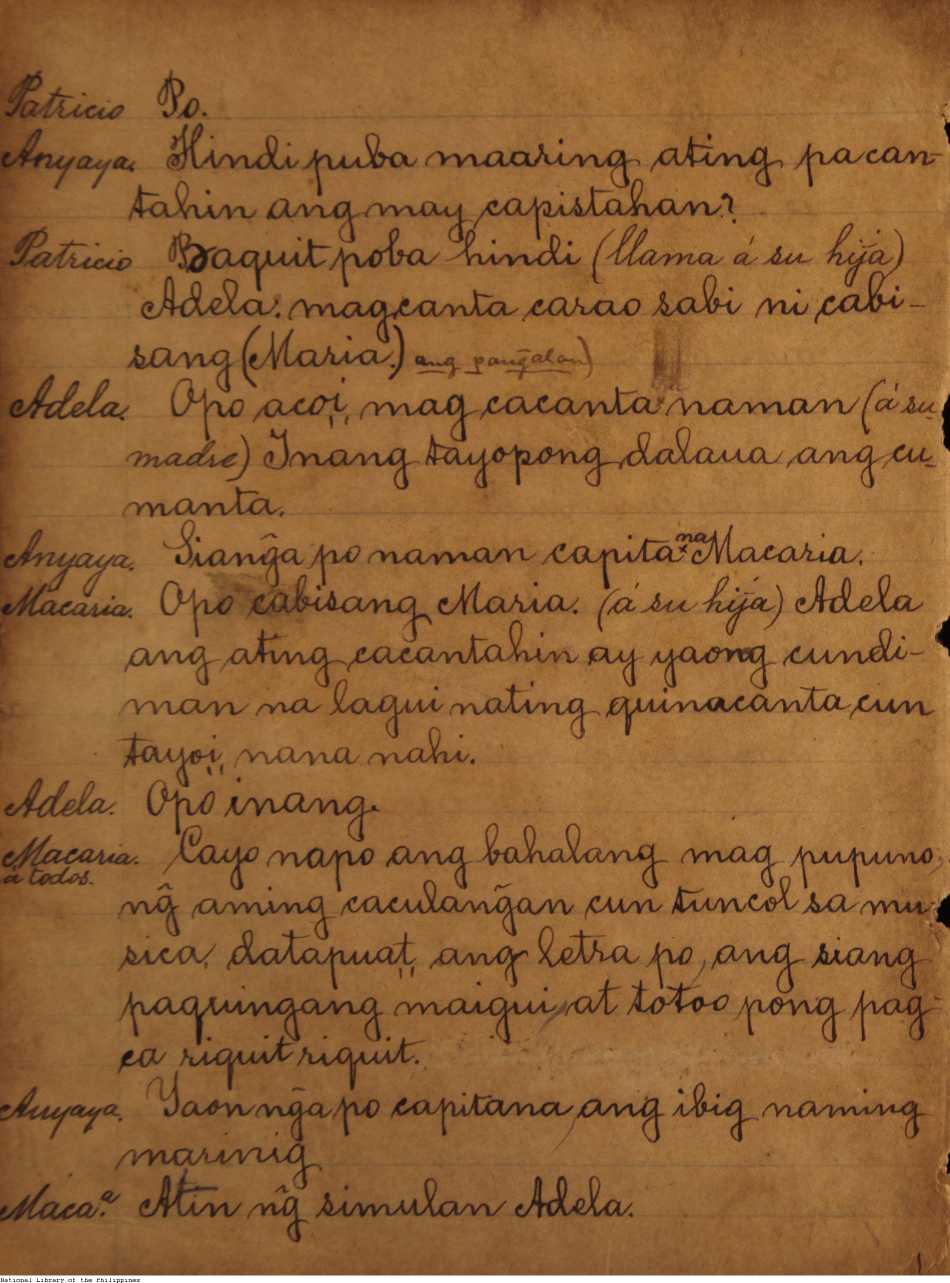 Patricio Po.
Anyaya. Hindi puba maaring ating pacan-
tahin ang may capistahan?
Patricio Baquit poba hindi (llama á su hija)
Adela: magcanta carao sabi ni cabi-
sang (Maria.) ang pang̃alan)
Adela. Opo acoi, mag cacanta naman (á su
madre) Inang tayopong dalaua ang cu-
manta.
Anyaya. Siang̃a po naman capitana Macaria.
Macaria. Opo cabisang Maria. (á su hija) Adela
ang ating cacantahin ay yaong cundi-
man na lagui nating quinacanta cun
tayoi, nana nahi.
Adela. Opo inang.
Macaria. Cayo napo ang bahalang mag pupuno,
á todos.
ng̃ aming caculang̃an cun tuncol sa mu-
sica, datapuat, ang letra po, ang siang
paquingang maigui, at totoo pong pag-
ca riquit riquit.
Anyaya. Yaon ng̃a po capitana, ang ibig naming
marinig
Maca.ª Atin ng̃ simulan Adela.
National Library of the Philippines